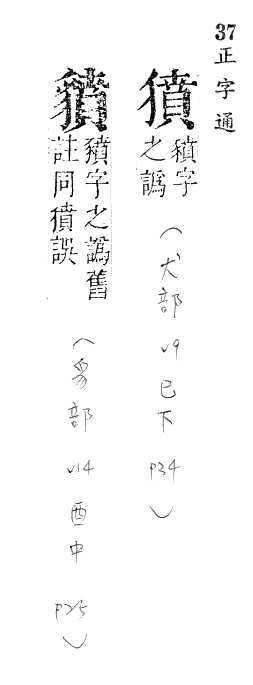 37 正字通
獖
豶字
之譌
(犬部 v9 巳下 p34)
豶字之譌舊
註同獖誤
(豸部 v14 酉中 p25)